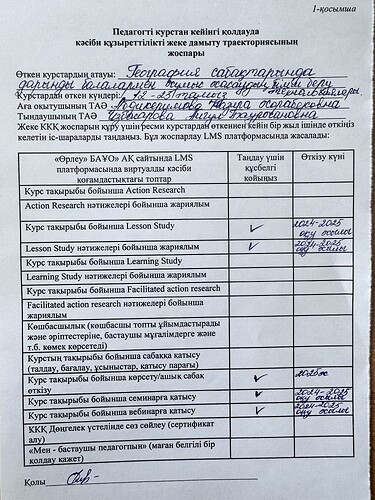 1-қосымша
Педагогті курстан кейінгі қолдауда
кәсіби құзыреттілікті жеке дамыту траекториясының
жоспары
Өткен курстардың атауы: География сабақтарында
дарынды балалармен жұмыс жасаудың білім беру технологиялары
Курстардан өткен күндері: 12-23 тамыз
Аға оқытушының ТАӘ
Тыңдаушының ТАӘ
Жеке ККҚ жоспарын құру үшін ресми курстардан өткеннен кейін бір жыл ішінде өткіңіз
келетін іс-шараларды таңдаңыз. Бұл жоспарлау LMS платформасында жасалады:
«Өрлеу» БАҰО» АҚ сайтында LMS платформасында виртуалды кәсіби қоғамдастықтағы топтар | Таңдау үшін құсбелгі қойыңыз | Өткізу күні
Курс тақырыбы бойынша Action Research
Action Research нәтижелері бойынша жариялым
Курс тақырыбы бойынша Lesson Study ✓ 2024-2025 оқу жылы
Lesson Study нәтижелері бойынша жариялым ✓ 2024-2025 оқу жылы
Курс тақырыбы бойынша Learning Study
Learning Study нәтижелері бойынша жариялым
Курс тақырыбы бойынша Facilitated action research
Facilitated action research нәтижелері бойынша
жариялым
Көшбасшылық (көшбасшы топты ұйымдастырады
және әріптестеріне, бастаушы мұғалімдерге және
т.б. көмек көрсетеді)
Курстың тақырыбы бойынша сабаққа қатысу
(талдау, бағалау, ұсыныстар, қатысу парағы)
Курс тақырыбы бойынша көрсету/ашық сабақ
өткізу ✓ 2025ж
Курс тақырыбы бойынша семинарға қатысу ✓ 2024-2025 оқу жылы
Курс тақырыбы бойынша вебинарға қатысу ✓ 2024-2025 оқу жылы
ККҚ Дөңгелек үстелінде сөз сөйлеу (сертификат
алу)
«Мен - бастаушы педагогпын» (маған белгілі бір
қолдау қажет)
Қолы